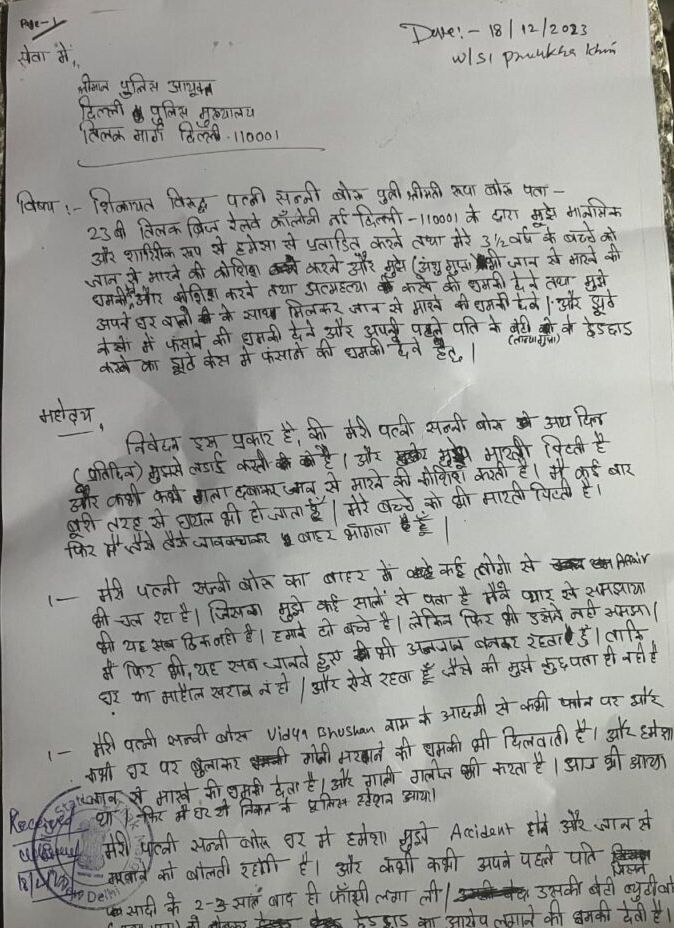 Page-1
Date:- 18/12/2023
W/SI
सेवा में,
श्रीमान पुलिस आयुक्त
दिल्ली पुलिस मुख्यालय
तिलक मार्ग दिल्ली-110001
विषय :- शिकायत विरूद्ध पत्नी सन्नी बोस पुत्री श्रीमती रूपा बोस पता -
23 बी तिलक ब्रिज रेलवे कॉलोनी नई दिल्ली-110001 के द्वारा मुझे मानसिक
और शारीरिक रूप से हमेसा से प्रताडित करने तथा मेरे 3½ वर्ष के बच्चे को
जान से मारने की कोशिश करने और मुझे (अंशु गुप्ता) भी जान से मारने की
धमकी और कोशिश करने तथा आत्महत्या करने की धमकी देने तथा मुझे
अपने घर वालो के साथ मिलकर जान से मारने की धमकी देने। और झूठे
केसो में फंसाने की धमकी देने और अपनी पहले पति के बेटी के छेडछाड
करने का झूठे केस में फंसाने की धमकी देने हेतू।
महोदय,
निवेदन इस प्रकार है, की मेरी पत्नी सन्नी बोस आय दिन
(प्रतिदिन) मुझसे लडाई करती है। और मुझे मारती पिटती है
और कभी कभी गला दबाकर जान से मारने की कोशिश करती है। मै कई बार
बूरी तरह से घायल भी हो जाता हूँ। मेरे बच्चे को भी मारती पिटती है।
फिर मै जैसे तैसे जान बचाकर बाहर भागता हूँ।
1- मेरी पत्नी सन्नी बोस का बाहर में कई लोगो से Affair
भी चल रहा है। जिसका मुझे कई सालों से पता है मैने प्यार से समझाया
भी यह सब ठिक नही है। हमारे दो बच्चे है। लेकिन फिर भी उसने नही समझा।
मै फिर भी, यह सब जानते हुए भी अनजान बनकर रहता हूँ। ताकि
घर का माहौल खराब न हो। और ऐसे रहता हूँ जैसे की मुझे कुछ पता ही नही है
1- मेरी पत्नी सन्नी बोस Vidya Bhushan नाम के आदमी से कभी फोन पर और
कभी घर पर बुलाकर गोली मरवाने की धमकी भी दिलवाती है। और हमेशा
जान से मारने की धमकी देता है। और गाली गलोज भी करता है। आज भी आया
था। फिर मै घर से निकल के पुलिस स्टेशन आया।
मेरी पत्नी सन्नी बोस घर मे हमेशा मुझे Accident होने और जान से
मरवाने को बोलती रहती है। और कभी कभी अपने पहले पति जिसने
सादी के 2-3 साल बाद ही फाँसी लगा ली। उसकी बेटी
छेडछाड का आरोप लगाने की धमकी देती है।
Received
Delhi